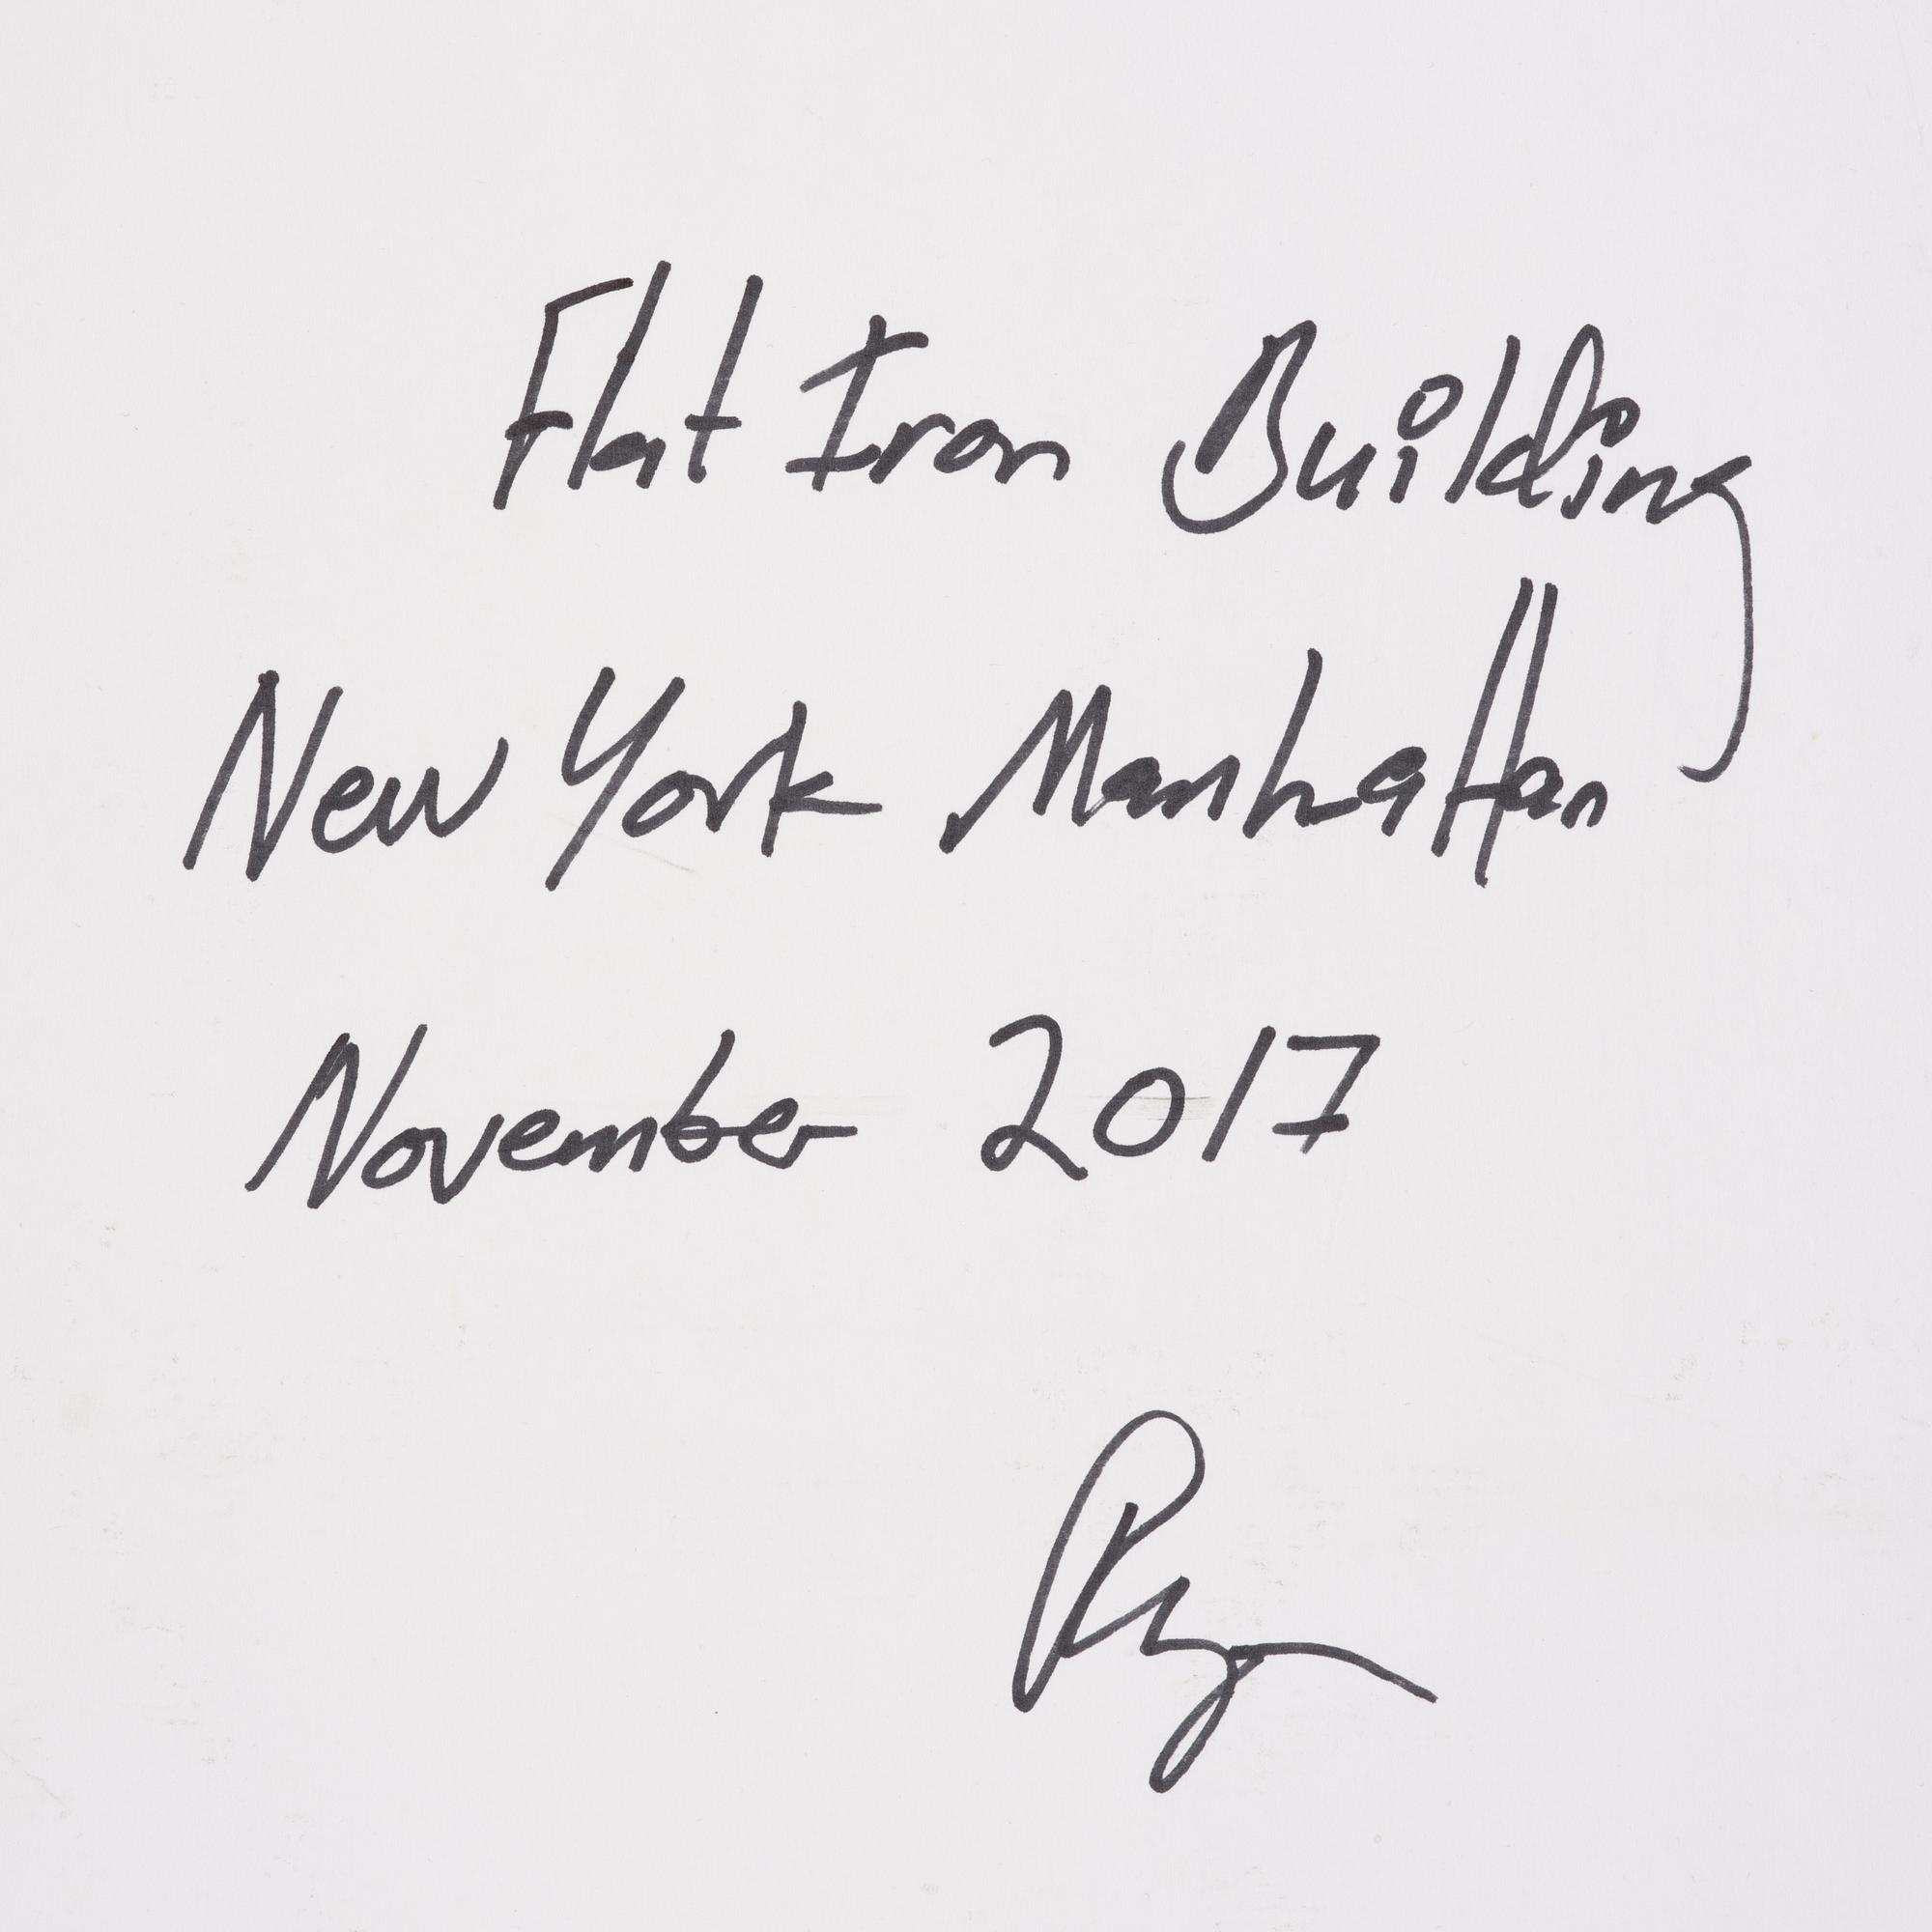 Flat Iron Building
New York Manhattan
November 2017